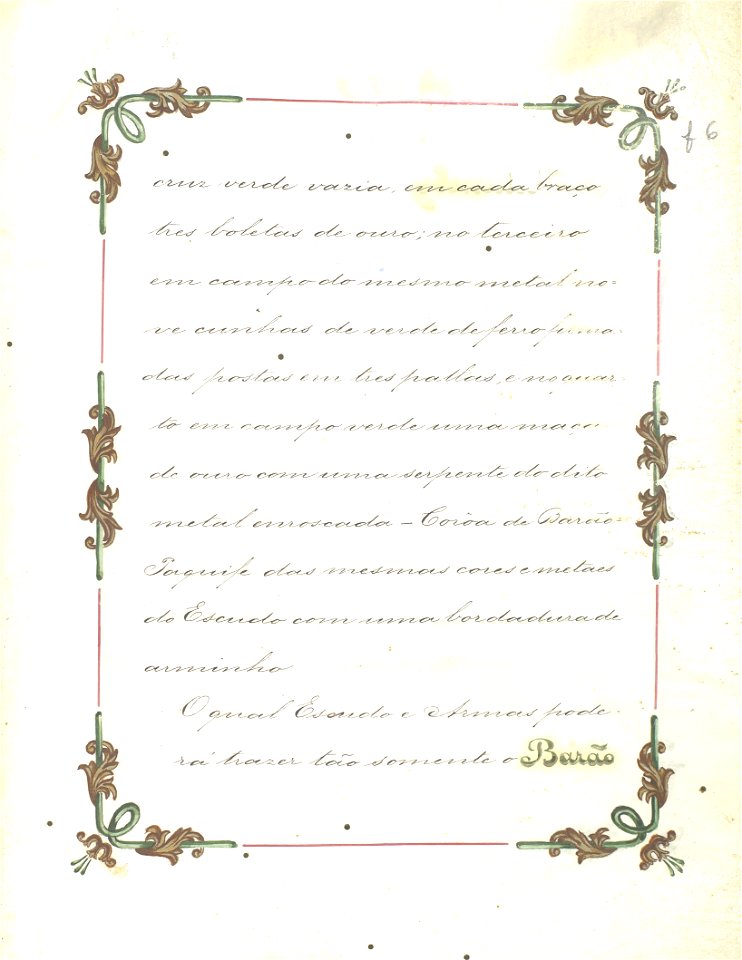 f 6
cruz verde vazia, em cada braço
tres boletas de ouro; no terceiro
em campo do mesmo metal no=
ve cunhas de verde de ferro firma-
das postas em tres pallas, e no quar-
to em campo verde uma maça
de ouro com uma serpente do dito
metal enroscada – Corôa de Barão=
Paquife das mesmas cores e metaes
do Escudo com uma bordadura de
arminho
O qual Escudo e Armas pode-
rá trazer tão somente o Barão